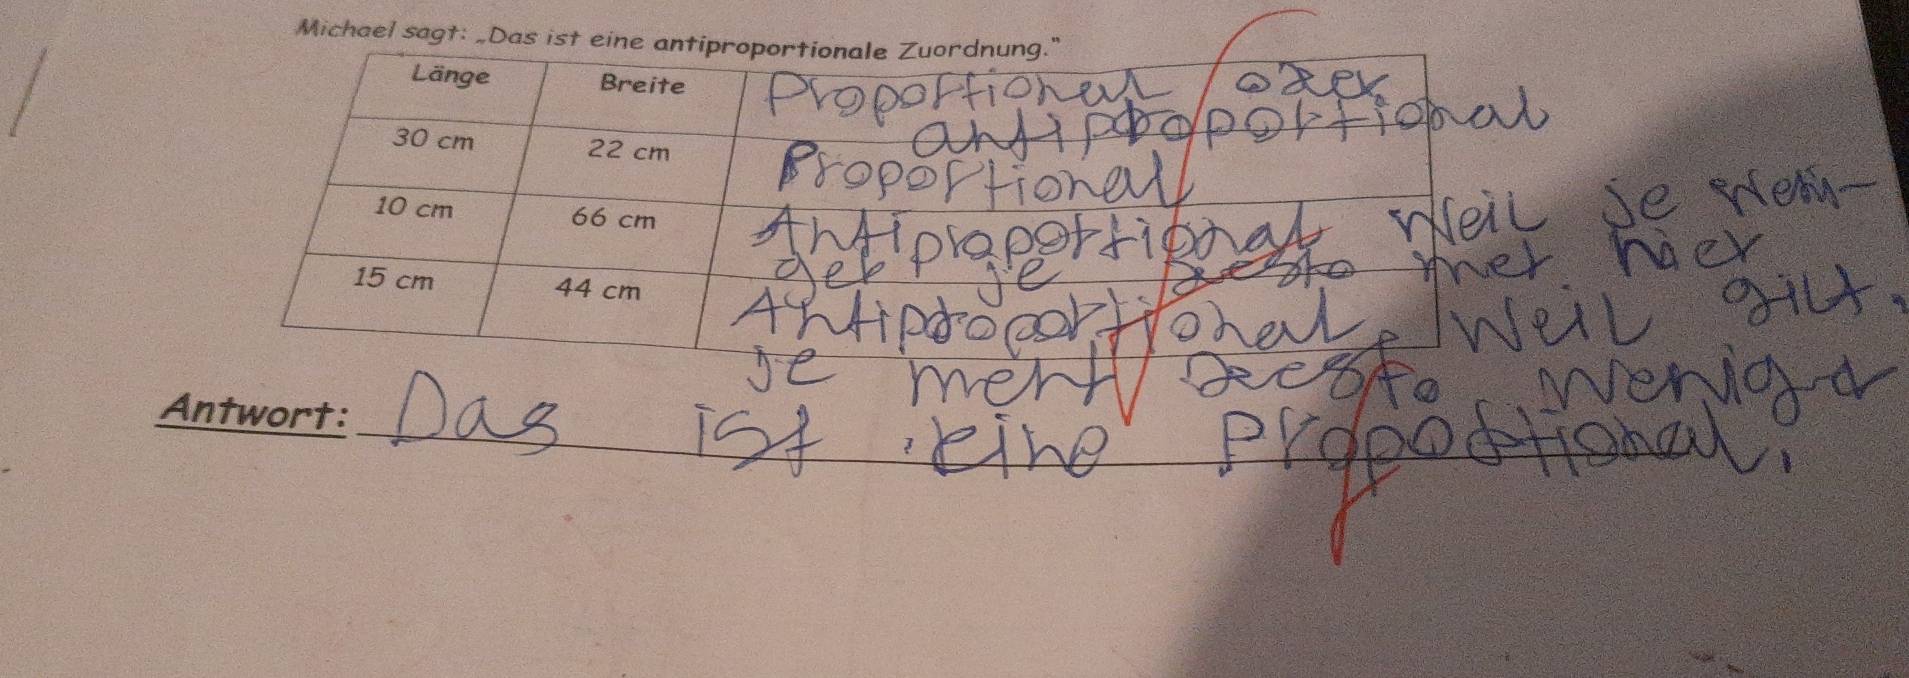 Michael sagt: „Das ist eine antiproportionale Zuordnung."
Länge Breite Proportional oder
antiproportional
30 cm 22 cm Proportional
10 cm 66 cm Antiproportional Weil je weni-
ger je desto mer hier
gilt.
15 cm 44 cm Antiproportional, Weil
je mehr desto weniger
Antwort: Das ist eine Proportional.